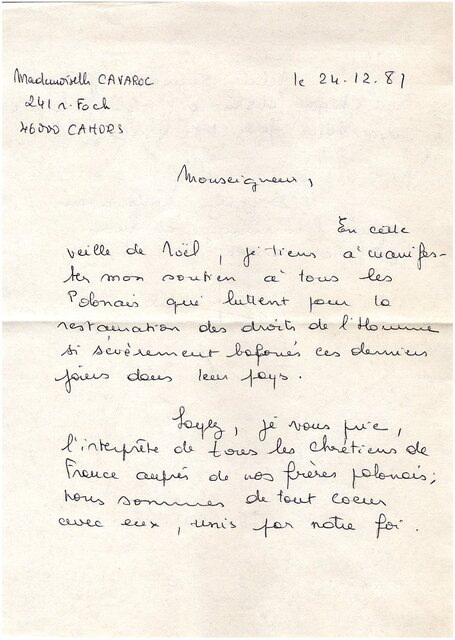 Mademoiselle CAVAROC
le 24.12.81
241 r. Foch
46000 CAHORS
Monseigneur,
En cette
veille de Noël, je tiens à manifes-
ter mon soutien à tous les
Polonais qui luttent pour la
restauration des droits de l'Homme
si sévèrement bafoués ces derniers
jours dans leur pays.
Soyez, je vous prie,
l'interprète de tous les chrétiens de
France auprès de nos frères polonais;
nous sommes de tout coeur
avec eux, unis par notre foi.